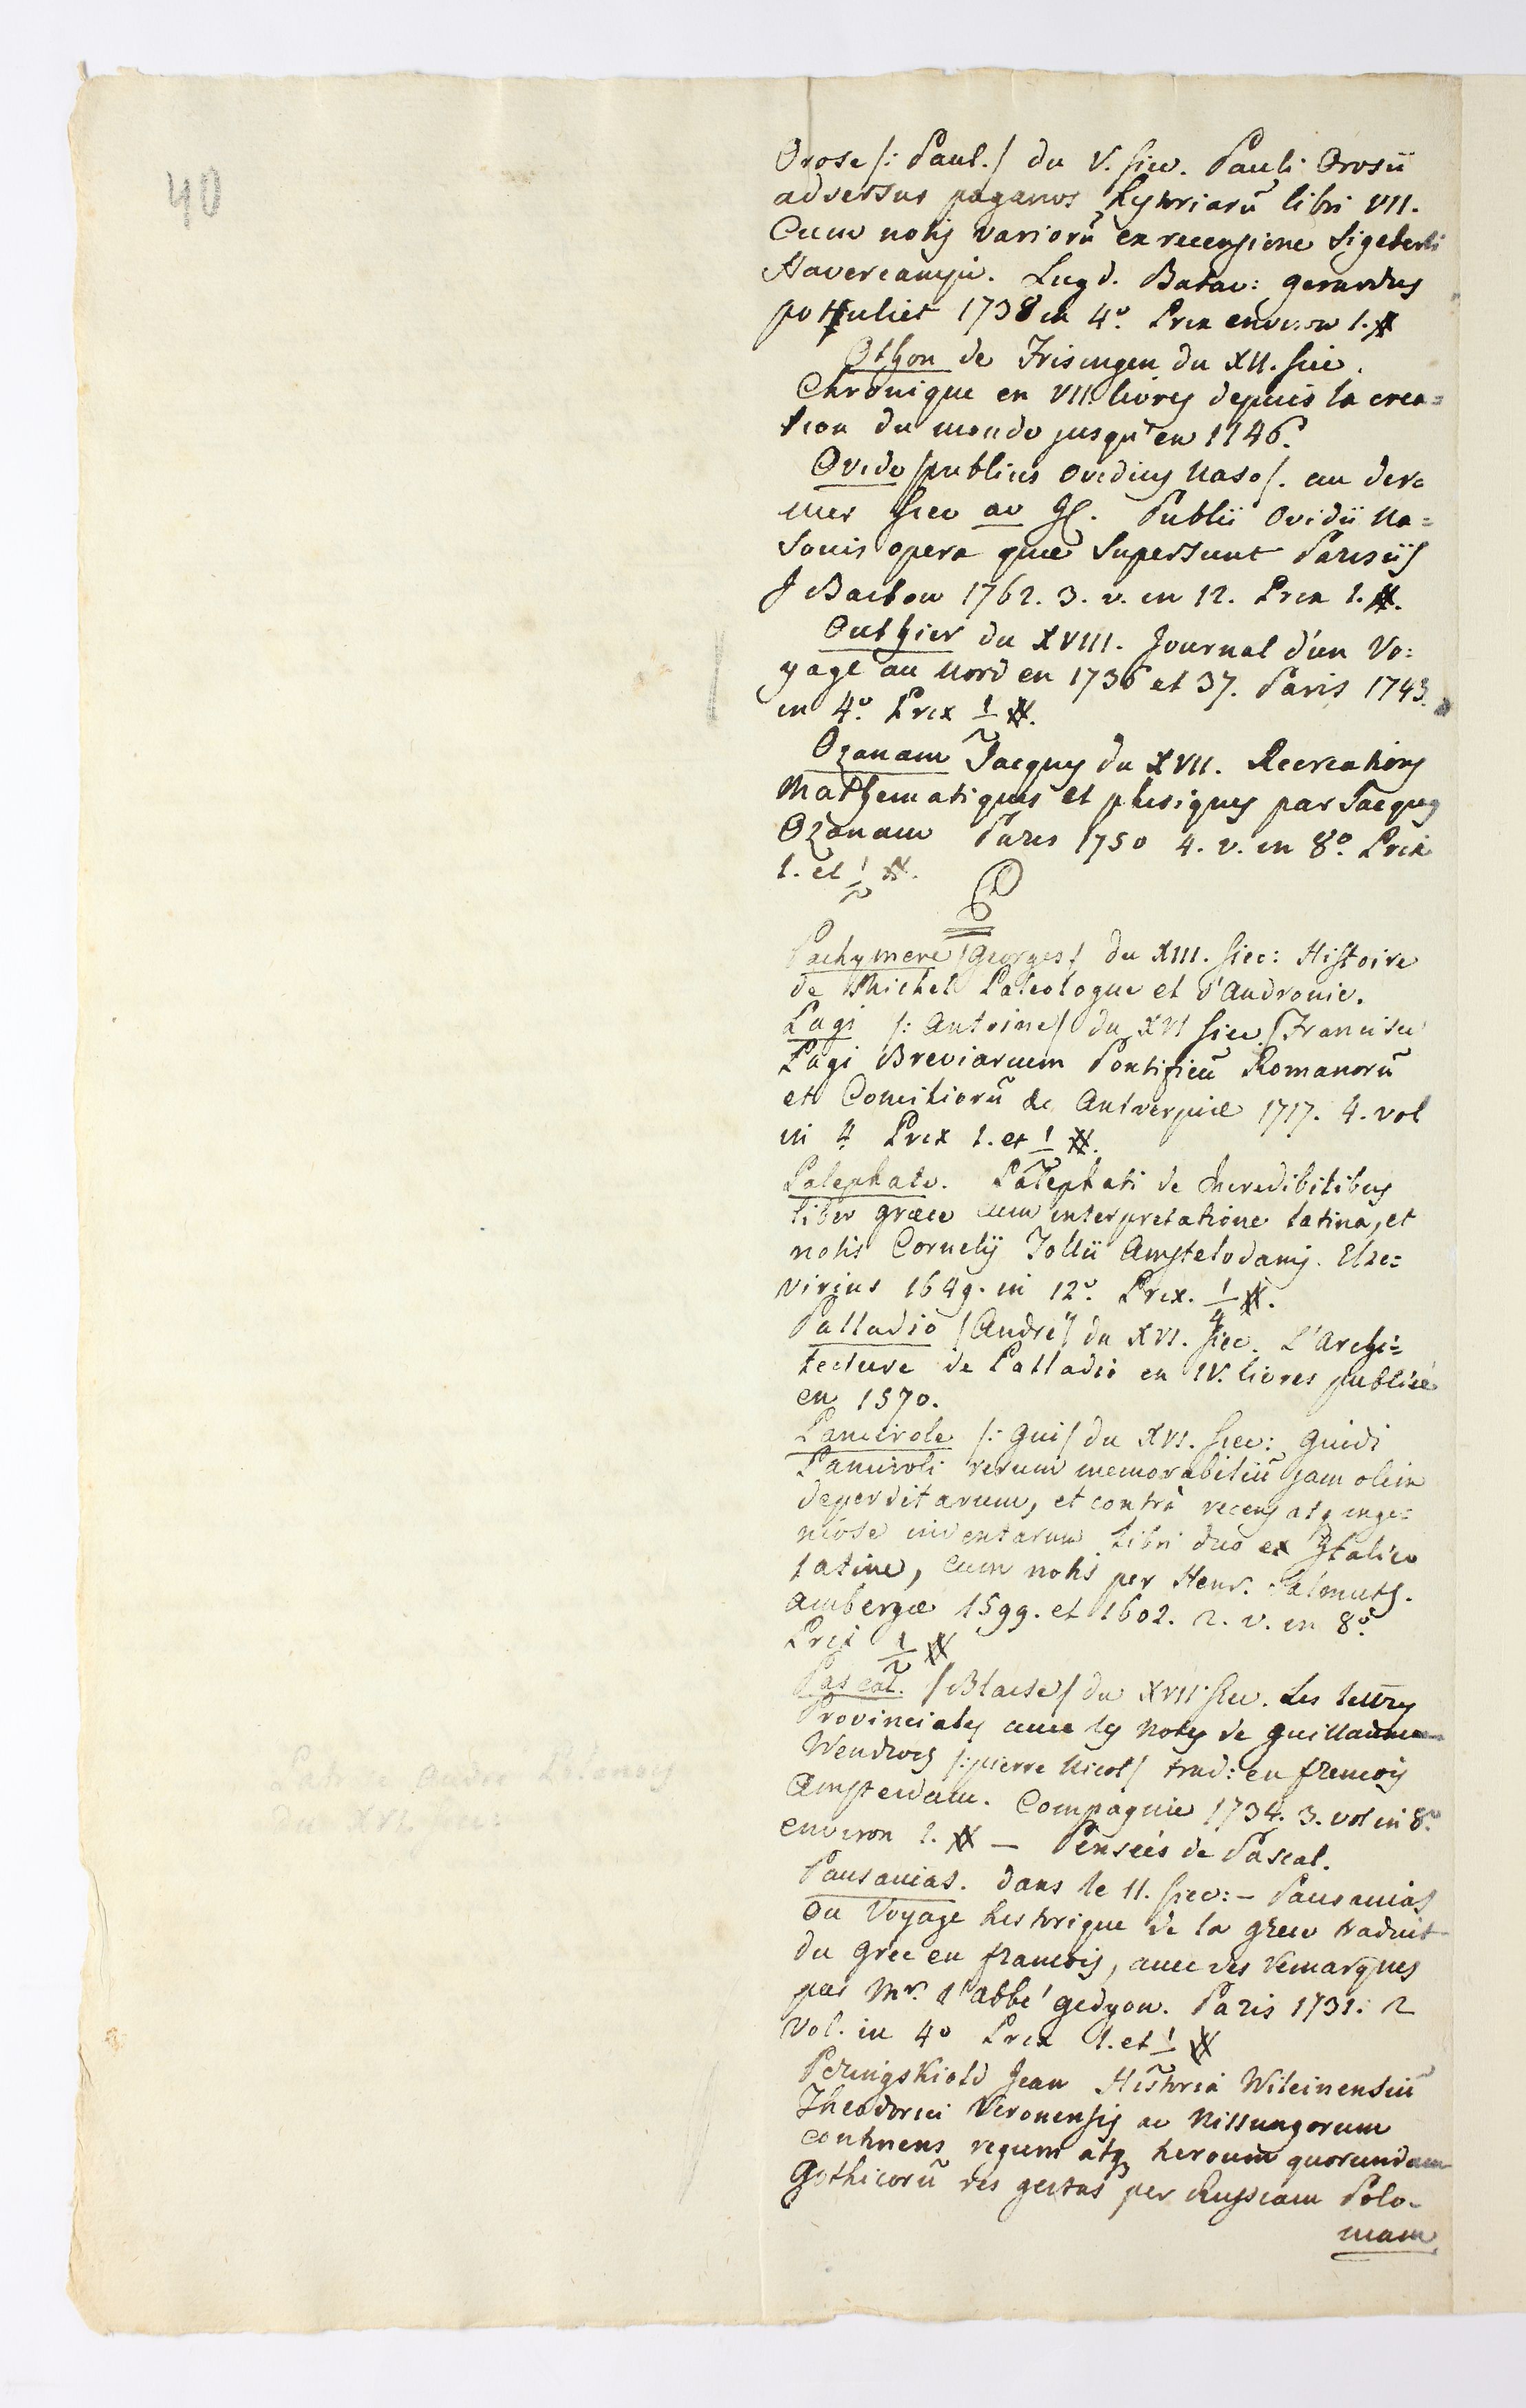 40
Orose /: Paul./ du V. siec. Pauli Orosii
adversus paganos hystoriarũ libri VII.
Cum notis variorũ ex recensione Sigeberti
Havercampii. Lugd. Batav: gerardus
pottuliet 1738 in 4º. Prix environ 1. #
Othon de Frisingen du XII. siec.
Chronique en VII. livres depuis la crea=
tion du monde jusqu'en 1146.
Ovide /publius ovidius Naso/. au der=
nier siec av JC. Publii Ovidii Na=
sonis opera quæ supersunt Parisiis
J Barbou 1762. 3. v. in 12. Prix 1. #.
Outhier du XVIII. Journal d'un Vo:
yage au Nord en 1736 et 37. Paris 1743.
in 4º. Prix 1/2 #.
Ozanam Jacques du XVII. Recreations
Mathematiques et phisiques par Jacques
Ozanam Paris 1750 4. v. in 8º. Prix
1. et 1/2 #.
P
Pachymere /Georges/ du XIII. siec: Histoire
de Michel Paleologue et d'Andronic.
Pagi /: Antoine/ du XVI siec. /Francisci
Pagi Breviarium Pontificũ Romanorũ
et Conciliorũ &c Antverpiæ 1717. 4. vol
in 4 Prix 1. et 1/2 #.
Palephate. Palephati de Incredibilibus
liber græce cum interpretatione latina, et
notis Cornelij Tollii Amstelodami. Elze=
virius 1649. in 12º. Prix. 1/4 #.
Palladio /André/ du XVI. siec. L'Archi=
tecture de Palladio en IV. livres publiée
en 1570.
Pancirole /: Gui/ du XVI. siec: Guidi
Panciroli rerum memorabiliũ jam olim
deperditarum, et contrà recens atq inge=
niose inventarum libri duo ex Italico
latine, cum notis per Henr. Salmuth.
Ambergæ 1599. et 1602. 2. v. in 8º.
Prix 1/2 #
Pascal. /Blaise/ du XVII siec. Les lettres
Provinciales avec les notes de Guillaume
Wendroch /: pierre Nicol/ trad: en francois
Amsterdam. Compagnie 1734. 3. vol in 8º
environ 1. # — Pensées de Pascal.
Patrice André Polonois
du XVI siec:
Pausanias. dans le II. siec: — Pausanias
ou Voyage historique de la grece traduit
du grec en francois, avec des remarques
par Mr. l'abbé gedyon. Paris 1731. 2
Vol. in 4º Prix 1. et 1/2 #
Peringskiold Jean Historia Wilcinensiũ
Theodorici Veronensis ac Nissungorum
continens regum atq heroum quorundam
Gothicorũ res gestas per Russiam Polo-
niam